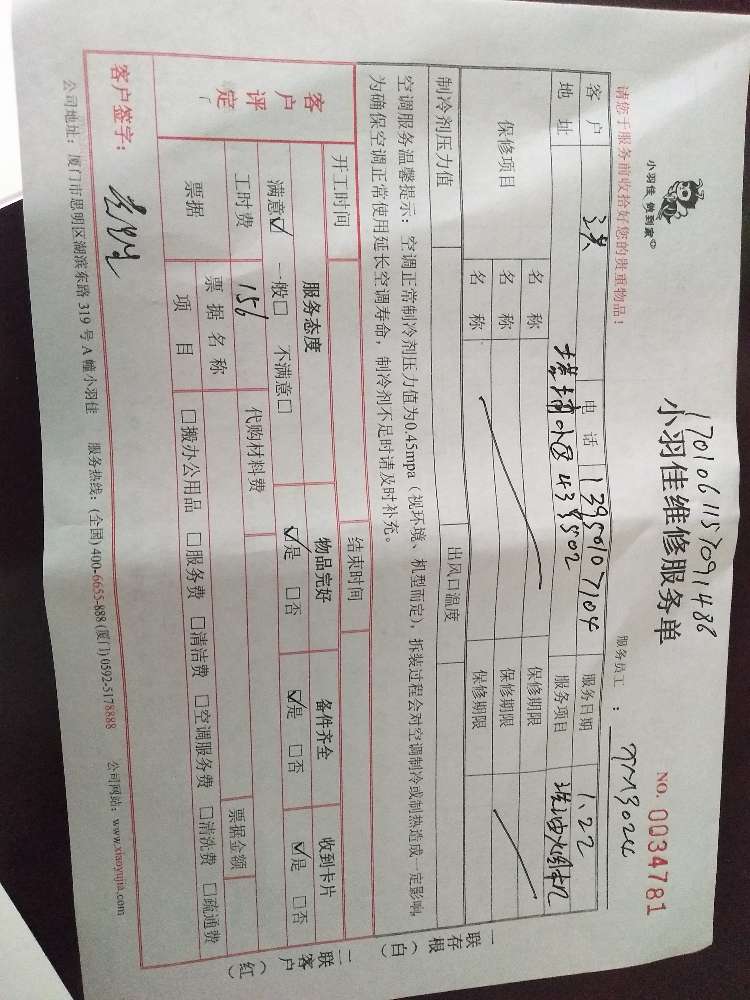 小羽佳 做到家
1701061157091486
小羽佳维修服务单
NO. 0034781
请您于服务前收拾好您的贵重物品！
服务员工：XM3024
客户 洪 电话 13950107104 服务日期 1.22
地址 塘埔小区439502 服务项目 洗油烟机
保修项目
名称 保修期限
名称 保修期限
名称 保修期限
制冷剂压力值 出风口温度
空调服务温馨提示：空调正常制冷剂压力值为0.45mpa（视环境、机型而定），拆装过程会对空调制冷或制热造成一定影响，
为确保空调正常使用延长空调寿命，制冷剂不足时请及时补充。
开工时间 结束时间
客户评定
服务态度 物品完好 备件齐全 收到卡片
满意☑ 一般□ 不满意□ ☑是 □否 ☑是 □否 ☑是 □否
工时费 156 代购材料费
票据 票据名称 票据金额
项目 □搬办公用品 □服务费 □清洁费 □空调服务费 □清洗费 □疏通费
客户签字：
公司地址：厦门市思明区湖滨东路319号A幢小羽佳 服务热线：(全国)400-6655-888 (厦门)0592-5178888 公司网站：www.xiaoyujia.com
一联存根（白）
二联客户（红）